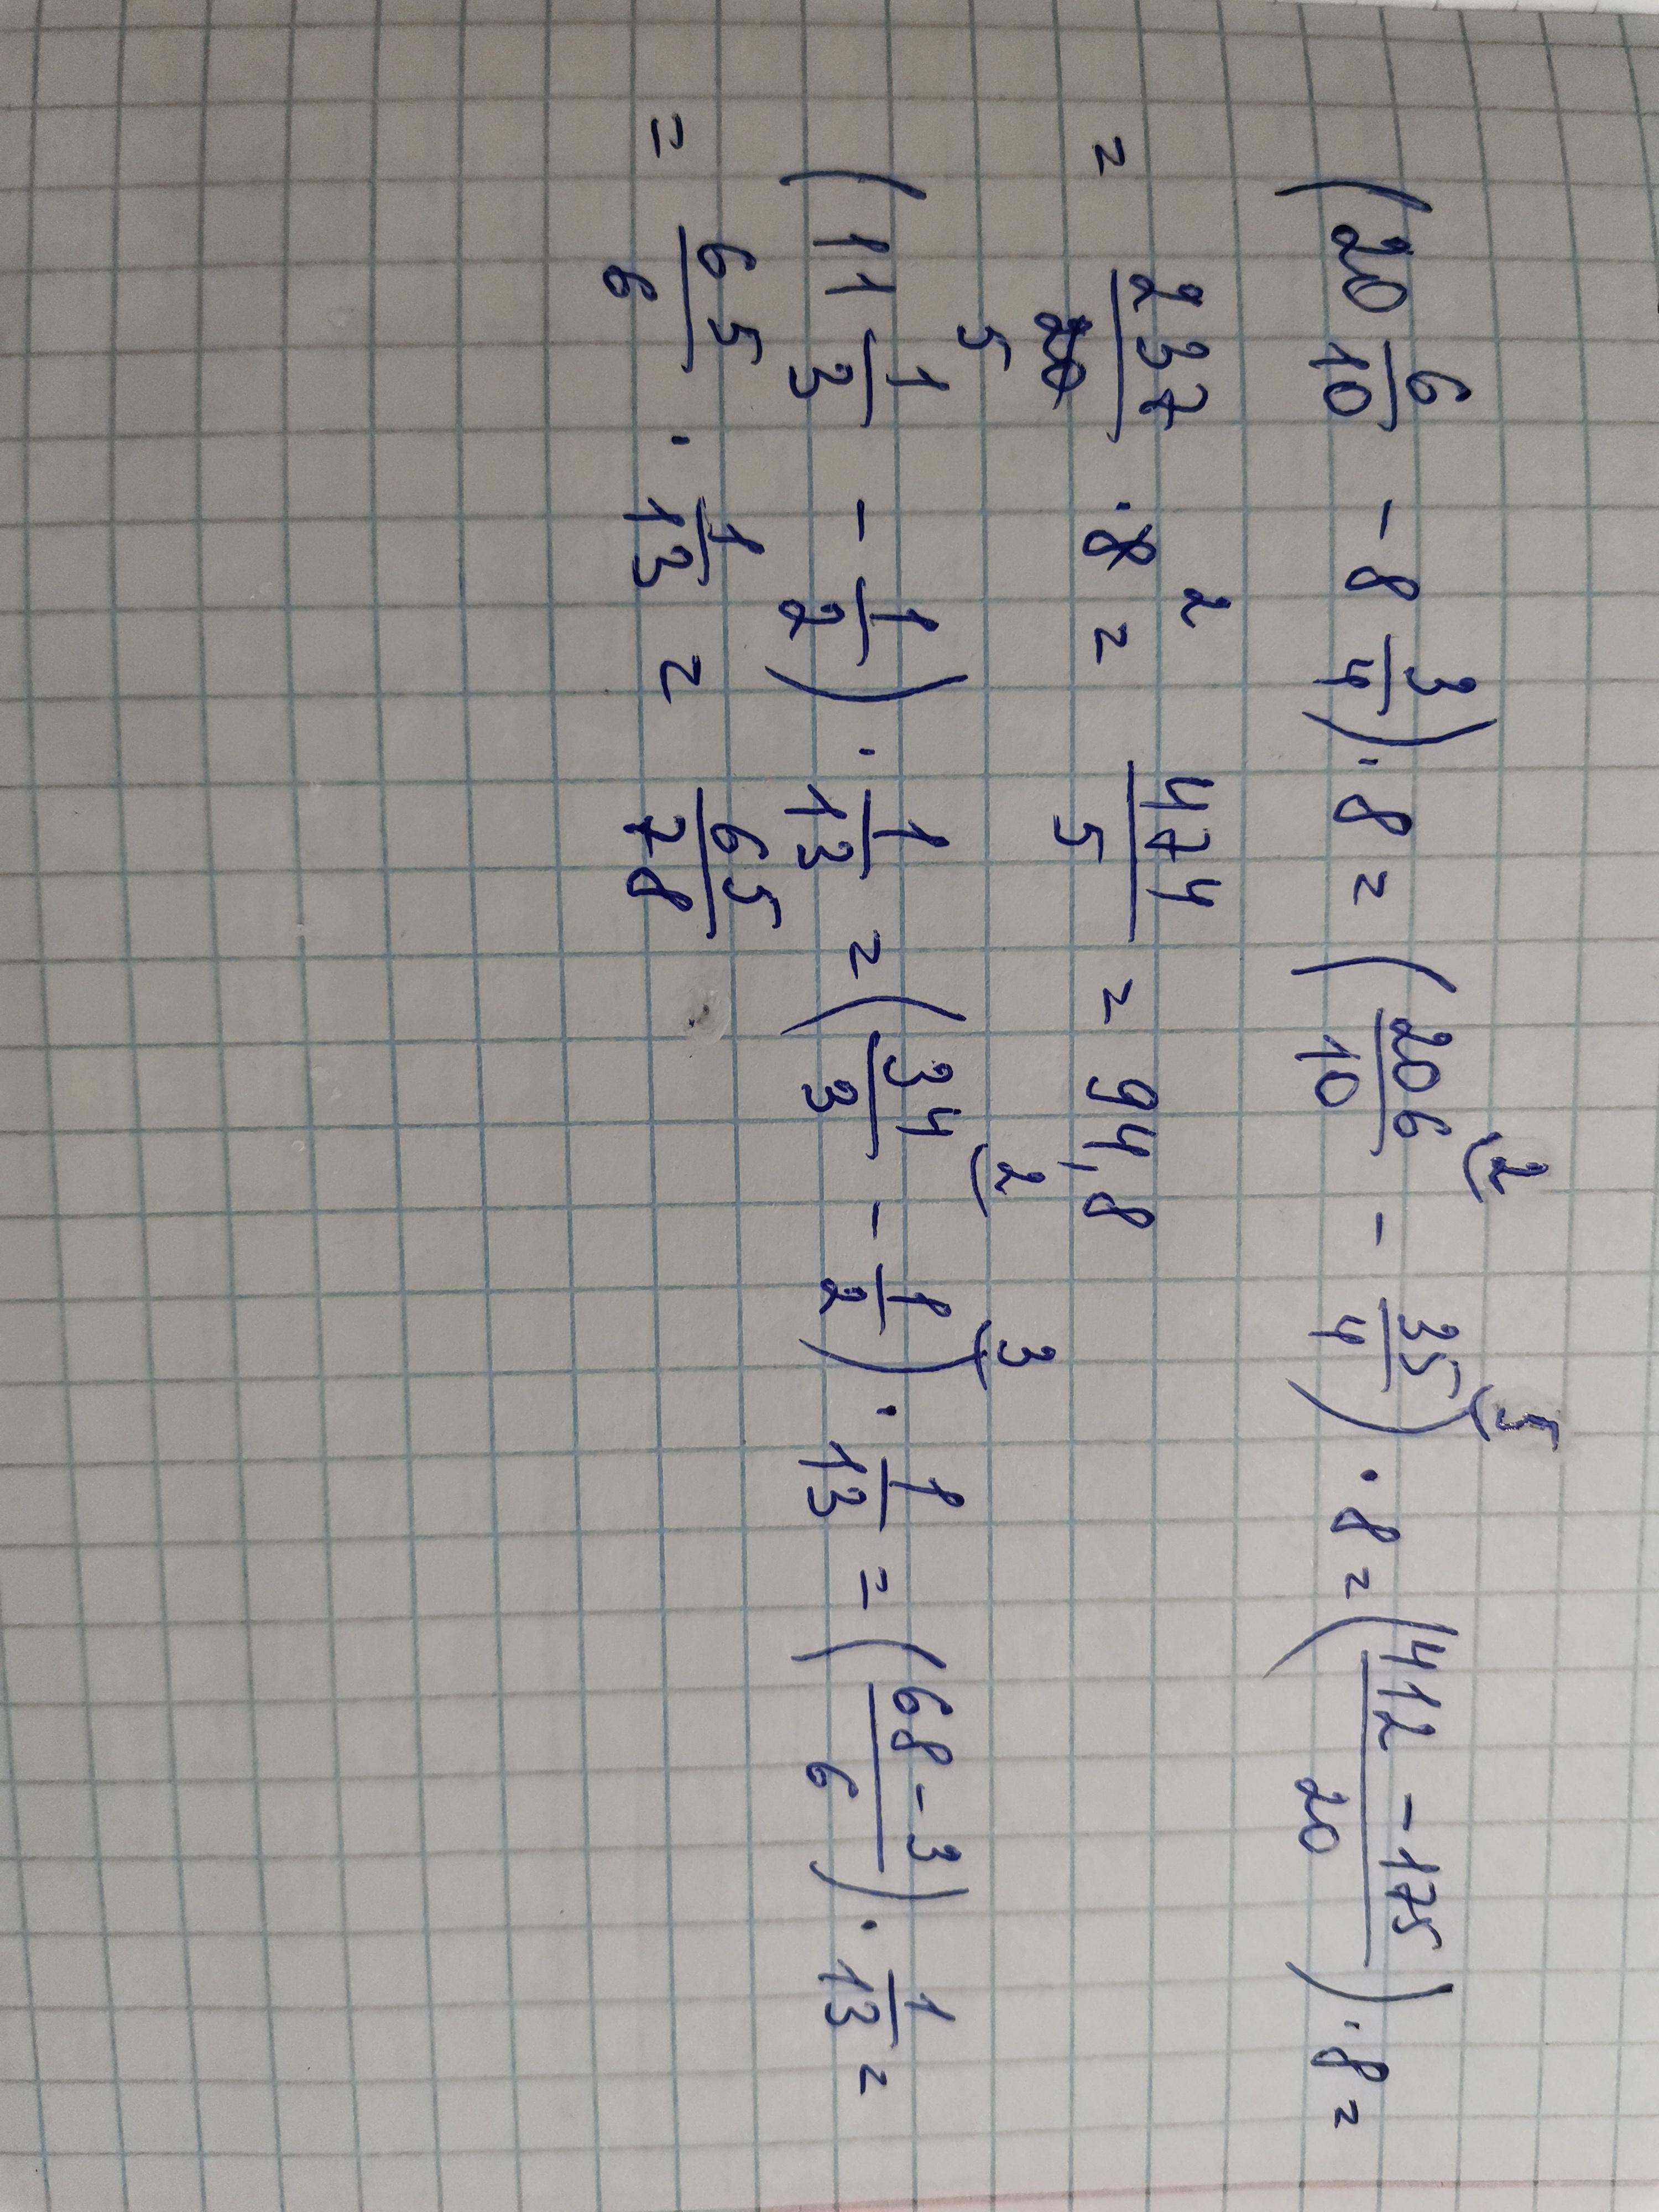 (20 6/10 - 8 3/4) · 8 = (206/10 (2 - 35/4 (5) · 8 = (412 - 175/20) · 8 =
= 237/20 5 · 8 2 = 474/5 = 94,8
(11 1/3 - 1/2) · 1/13 = (34/3 (2 - 1/2 (3) · 1/13 = (68 - 3/6) · 1/13 =
= 65/6 · 1/13 = 65/78